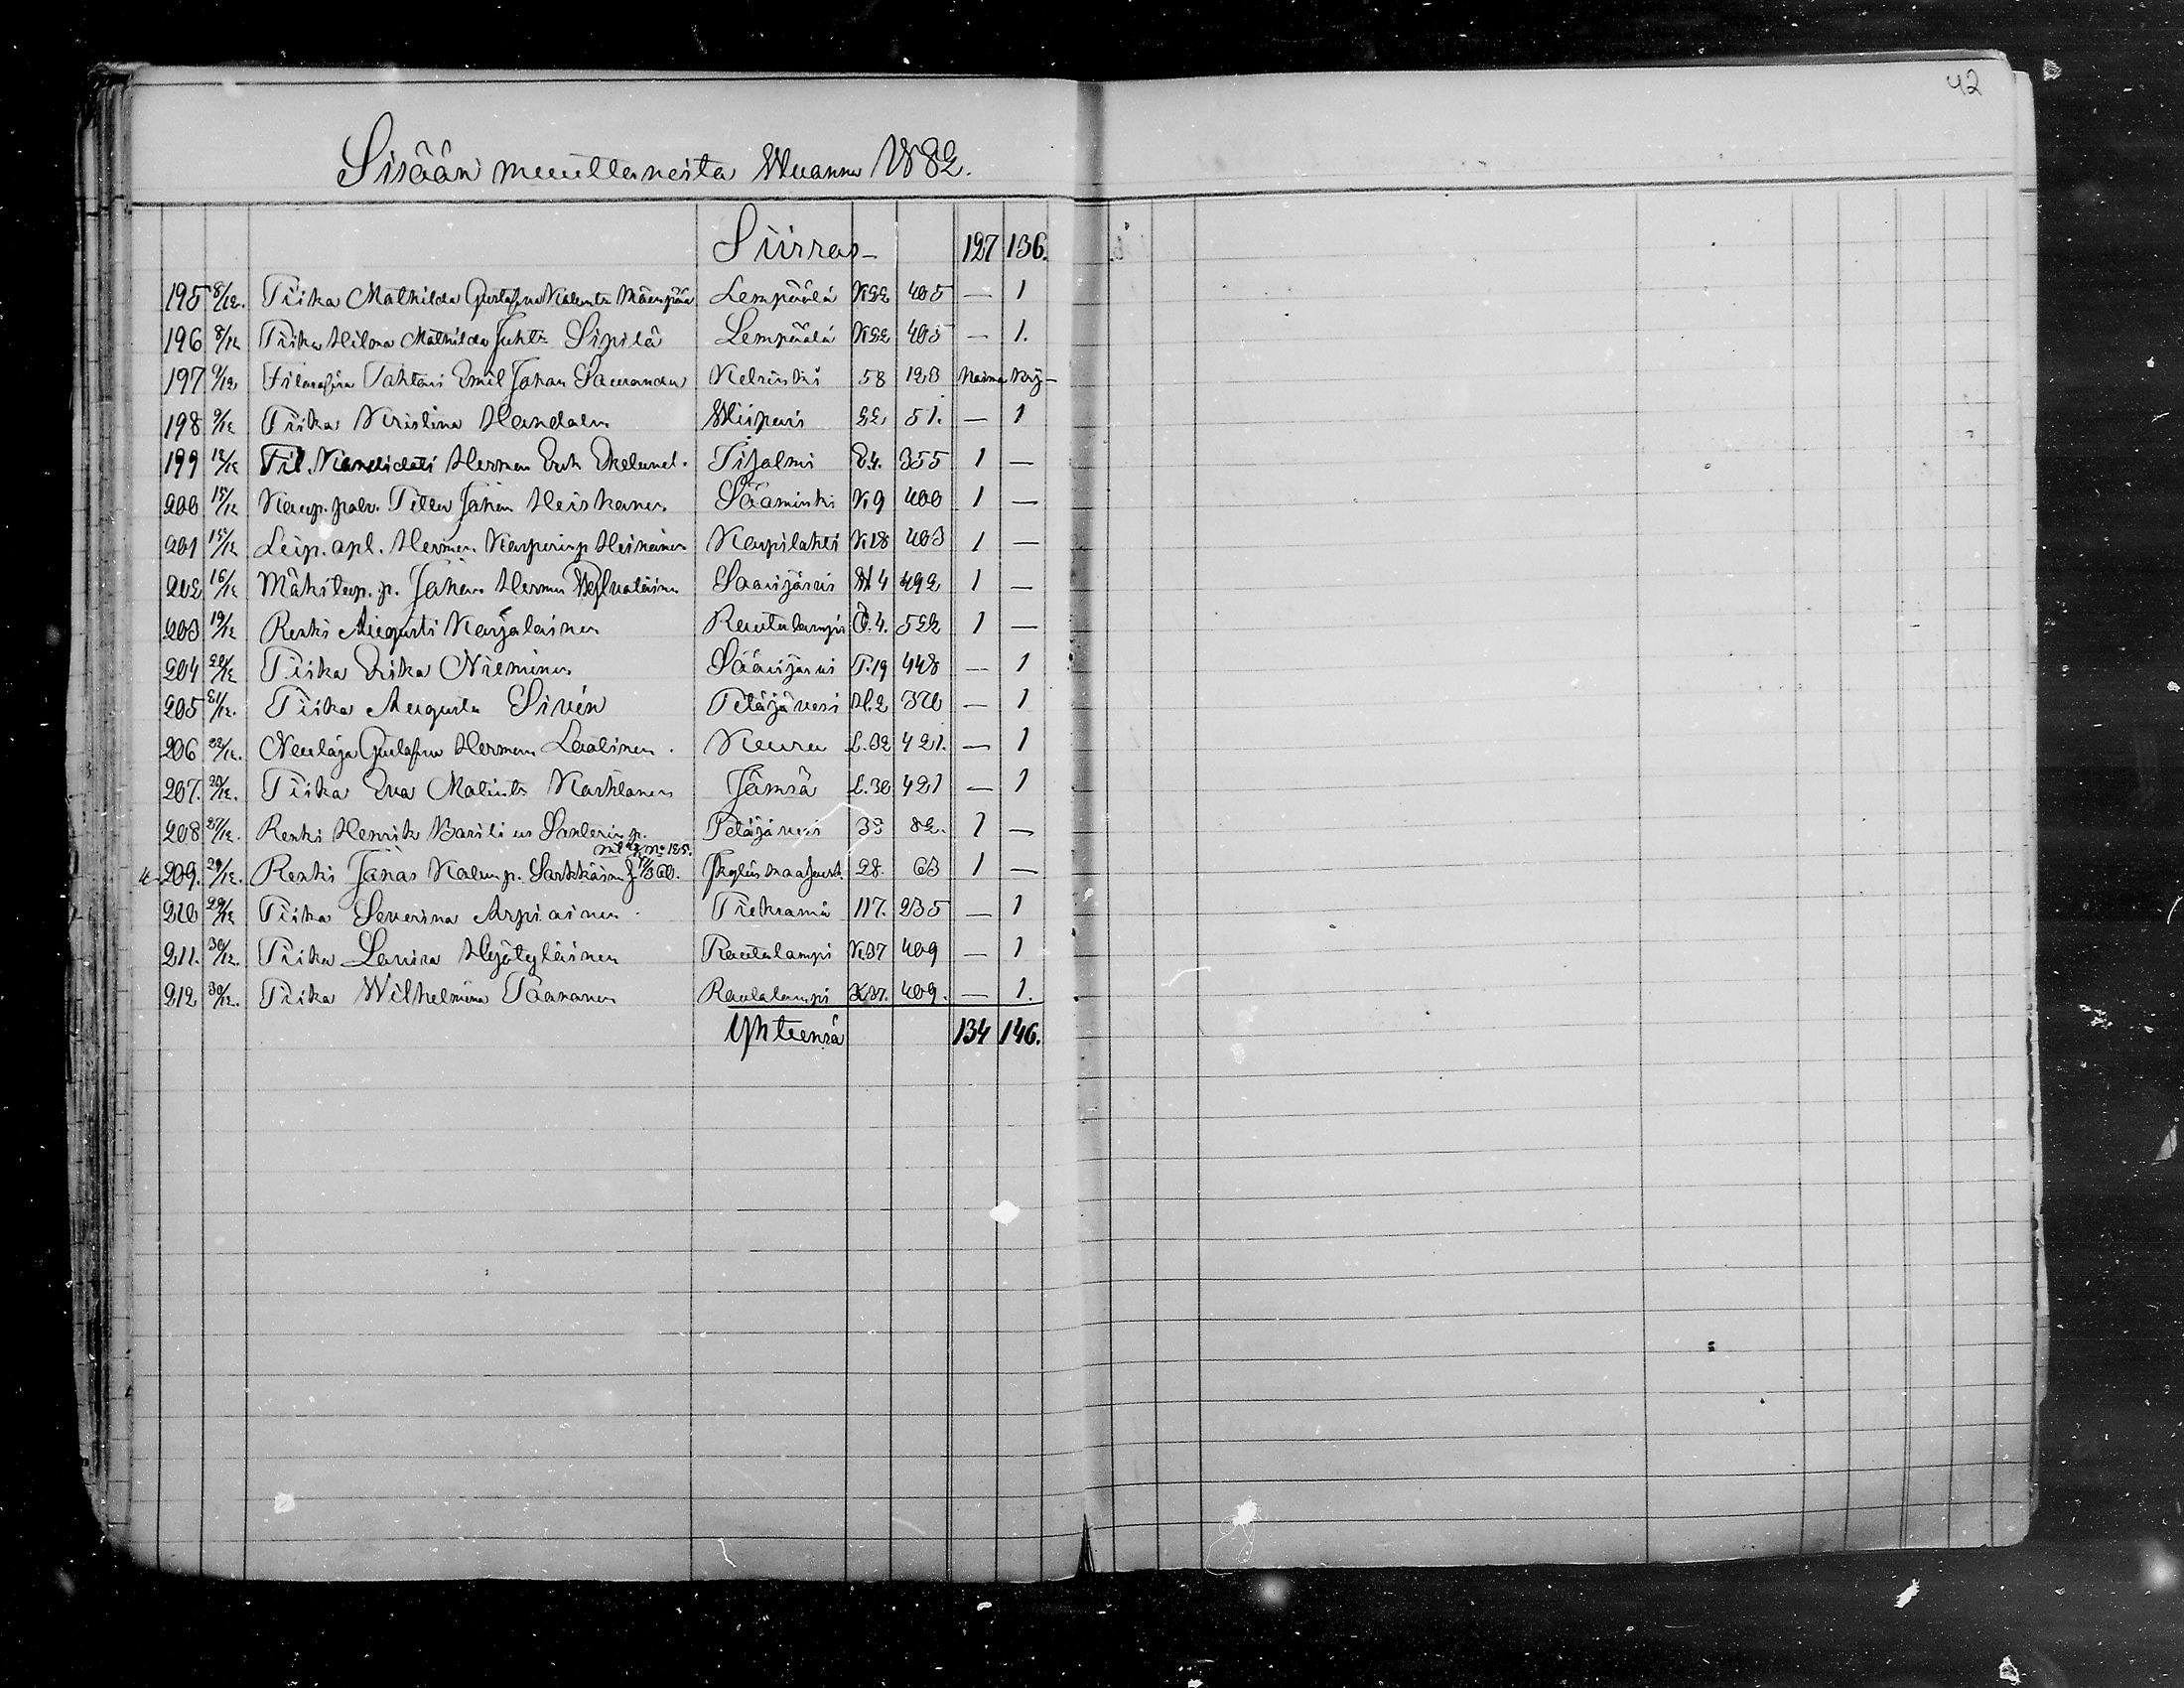 42
Sisään muuttaneita Wuonna 1882.
Siirras - 127 136.
195 8/12. Piika Mathilda Gustafva Kalentr Mäenpää Lempäälä K22 405 — 1
196 8/12 Piika Hilma Mathilda Juhtr Sipilä Lempäälä K22 405 — 1.
197 9/12 Tohtori Emil Johan Helsinki 58 123
198 9/12 Piika Kristina Wiipuri 22 51. — 1
199 12/12 Fil. Kandidati Herman Erik Ekelund. Iisalmi E4. 355 1 —
200 15/12 Kaup. palv. Petter Johan Heiskanen Sääminki K9 400 1 —
201 15/12 Leip. apl. Herman Kasperinp. Heinänen Korpilahti K18 403 1 —
202 16/12 p. Johan Herman Saarijärvi H4 492 1 —
203 19/12 Renki Augusti Karjalainen Rautalampi O.4. 522 1 —
204 20/12 Piika Erika Nieminen Saarijärvi P.19 448 — 1
205 21/12. Piika Augusta Sirén Petäjävesi H.2 370 — 1
206 22/12. Neulaja Gustafva Herman Laatinen. Keuru L.32 421. — 1
207. 23/12. Piika Eva Matintr Karklanen Jämsä L.30 421 — 1
208 27/12. Renki Henrik Basilius Santerinp. Petäjävesi 33 82. 1 —
209. 29/12. Renki Jonas Kalunp. Sarkkäinen 63 28. 1 —
210 29/12 Piika Severina Arpiainen. Pieksämä 117. 235 — 1
211. 30/12. Piika Lovisa Hyötyläinen Rautalampi K37 409 — 1
212 30/12. Piika Wilhelmina Paananen Rautalampi K37. 409. — 1.
Yhteensä 134 146.